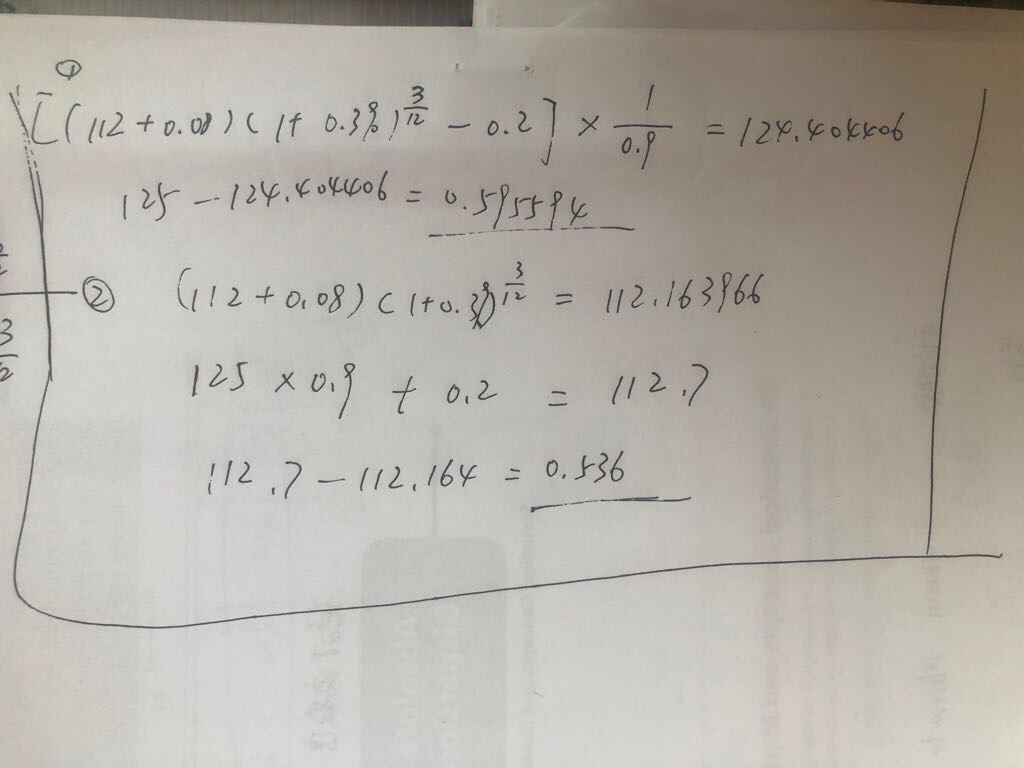 ①
[(112+0.08)(1+0.3%)^3/12 - 0.2] × 1/0.9 = 124.404406
125 - 124.404406 = 0.595594
② (112+0.08)(1+0.3%)^3/12 = 112.163966
125 × 0.9 + 0.2 = 112.7
112.7 - 112.164 = 0.536